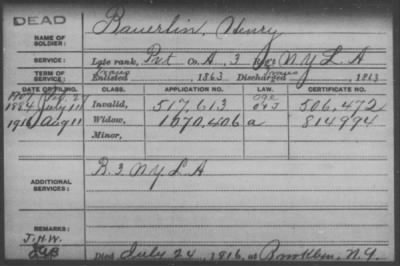 DEAD
NAME OF SOLDIER: Bauerlin, Henry
SERVICE: Late rank, Pvt Co. A, 3 Reg't N.Y.L.A
TERM OF SERVICE: Enlisted , 1863 Discharged , 1863
DATE OF FILING. CLASS. APPLICATION NO. LAW. CERTIFICATE NO.
1884 July 11 Invalid, 517,613 506,472
1916 Aug 11 Widow, 1070.406 a 814994
Minor,
ADDITIONAL SERVICES: B. 3. N.Y.L.A
REMARKS: J.H.W.
Died July 24, 1916, at Brooklyn, N.Y.